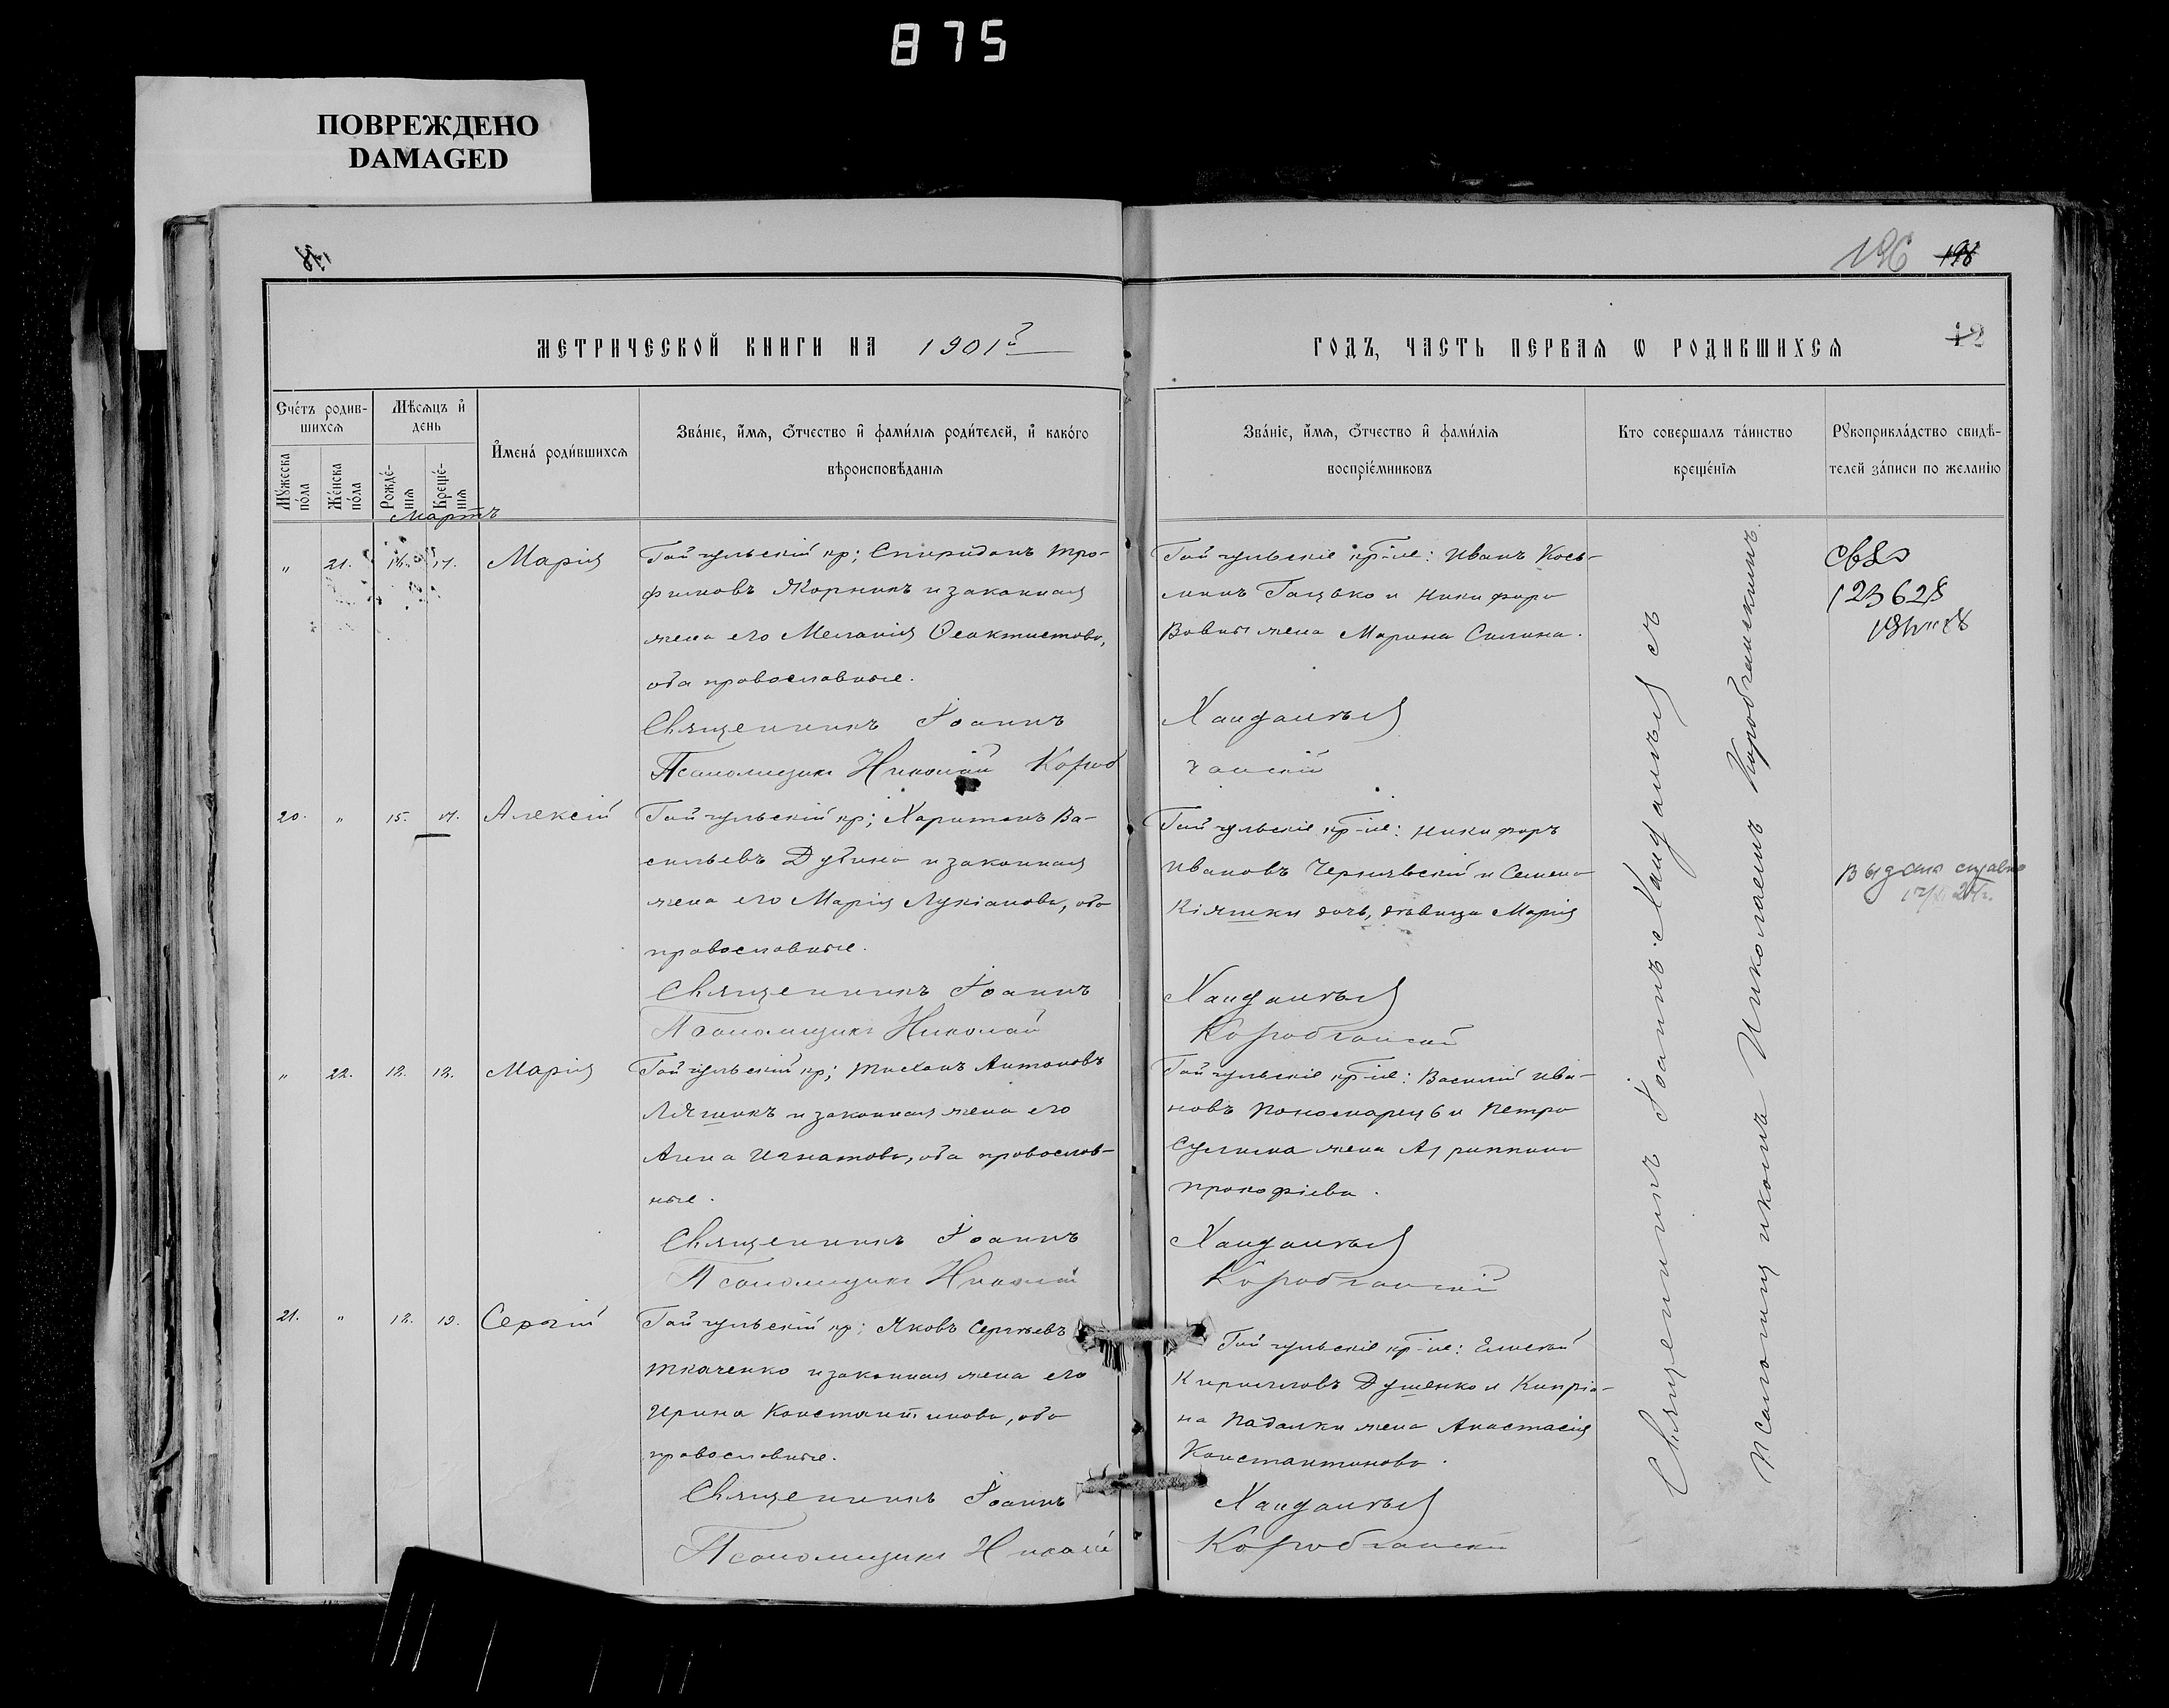 875
ПОВРЕЖДЕНО
DAMAGED
196 198
МЕТРИЧЕСКОЙ КНИГИ НА 1901 г
ГОДЪ, ЧАСТЬ ПЕРВАЯ Ѡ РОДИВШИХСЯ
12
Счетъ родив-
шихся
Мужеска пола
Женска пола
Мѣсяцъ и
день
Рожде-
нія
Креще-
нія
Имена родившихся
Званіе, имя, отчество и фамилія родителей, и какого
вѣроисповѣданія
Званіе, имя, отчество и фамилія
воспріемниковъ
Кто совершалъ таинство
крещенія
Рукоприкладство свидѣ-
телей записи по желанію
Мартъ
" 21. 16. 17. Марія
Гайчульскій кр; Спиридонъ Тро-
фимовъ Жорникъ и законная
жена его Меланія Ѳеоктистова,
оба православные.
Священникъ Іоаннъ
Псаломщикъ Николай Короб
Гайчульскіе кр-не: Иванъ Кось-
минъ Гацько и Никифора
Вовны жена Марина Силина.
Ханданьыя
чанскій
123628
20. " 15. 17. Алексій
Гайчульскій кр; Харитонъ Ва-
сильевъ Дубина и законная
жена его Марія Лукіанова, оба
православные.
Священникъ Іоаннъ
Псаломщикъ Николай
Гайчульскіе кр-не: Никифоръ
Ивановъ Чернявскій и Семена
Кіяшки дочь, дѣвица Марія
Коробчанскій
Выдана справка
" 22. 18. 18. Марія
Гайчульскій кр; Тихонъ Антоновъ
Ляшикъ и законная жена его
Анна Игнатова, оба православ-
ные.
Священникъ Іоаннъ
Псаломщикъ Николай
Гайчульскіе кр-не: Василій Ива-
новъ Пономарецъ и Петра
Сулима жена Агриппина
Прокофіева.
Коробчанскій
21. " 18. 19. Сергій
Гайчульскій кр; Яковъ Сергѣевъ
Ткаченко и законная жена его
Ирина Константинова, оба
православные.
Священникъ Іоаннъ
Псаломщикъ Николай
Гайчульскіе кр-не: Елисей
Кирилловъ Душенко и Кипріа-
на Падалки жена Анастасія
Константинова.
Коробчанскій
Священникъ Іоаннъ съ
псаломщикомъ Николаемъ Коробчанскимъ.